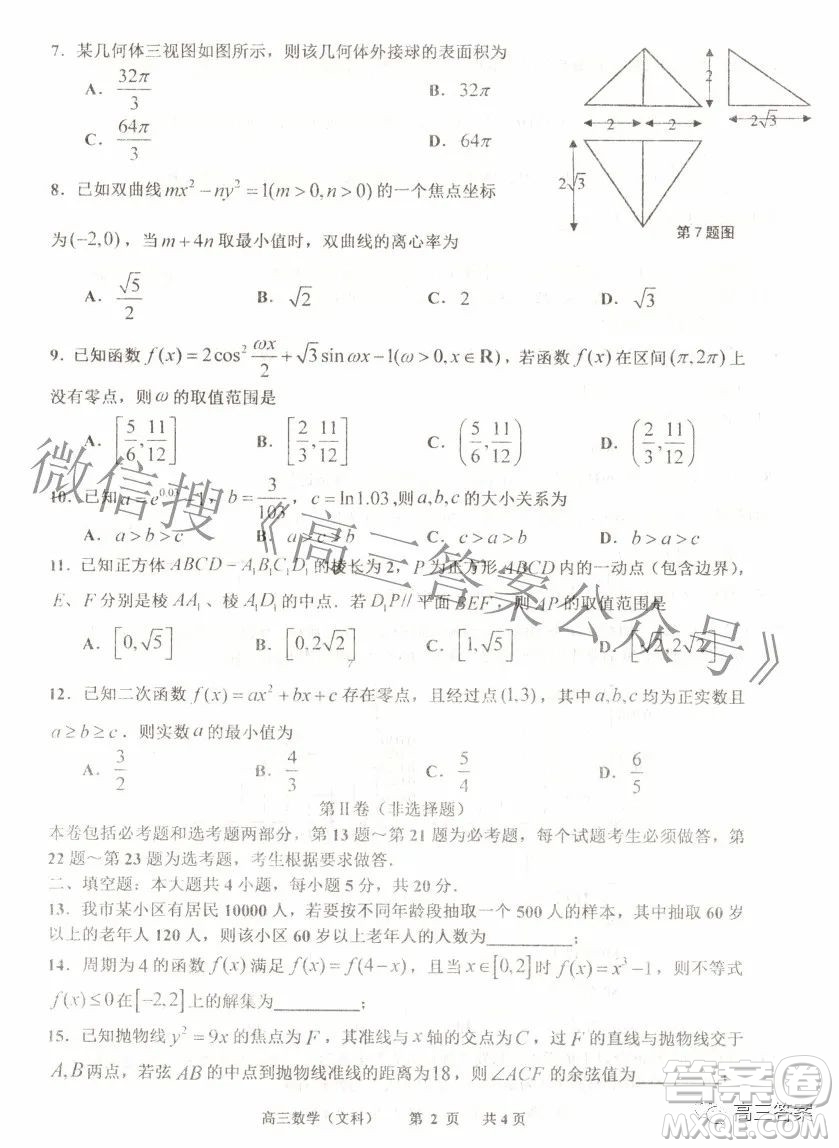 7. 某几何体三视图如图所示，则该几何体外接球的表面积为
A. 32π/3 B. 32π
C. 64π/3 D. 64π
2
2 2 2√3
2√3
第7题图
8. 已如双曲线 mx²−ny²=1(m>0,n>0) 的一个焦点坐标
为(−2,0)，当 m+4n 取最小值时，双曲线的离心率为
A. √5/2 B. √2 C. 2 D. √3
9. 已知函数 f(x)=2cos²(ωx/2)+√3sinωx−1(ω>0,x∈R)，若函数 f(x) 在区间(π,2π)上
没有零点，则ω的取值范围是
A. [5/6,11/12] B. [2/3,11/12] C. (5/6,11/12) D. (2/3,11/12)
10. 已知 a=e^0.03−1，b=3/103，c=ln1.03,则 a,b,c 的大小关系为
A. a>b>c B. a>c>b C. c>a>b D. b>a>c
11. 已知正方体 ABCD−A₁B₁C₁D₁的棱长为2，P为正方形ABCD内的一动点（包含边界），
E、F分别是棱AA₁、棱A₁D₁的中点. 若D₁P//平面BEF，则AP的取值范围是
A. [0,√5] B. [0,2√2] C. [1,√5] D. [√2,2√2]
12. 已知二次函数 f(x)=ax²+bx+c存在零点，且经过点(1,3)，其中a,b,c均为正实数且
a≥b≥c. 则实数a的最小值为
A. 3/2 B. 4/3 C. 5/4 D. 6/5
第II卷（非选择题）
本卷包括必考题和选考题两部分，第13题～第21题为必考题，每个试题考生必须做答，第
22题～第23题为选考题，考生根据要求做答.
二、填空题：本大题共4小题，每小题5分，共20分.
13. 我市某小区有居民10000人，若要按不同年龄段抽取一个500人的样本，其中抽取60岁
以上的老年人120人，则该小区60岁以上的老年人的人数为_________；
14. 周期为4的函数f(x)满足f(x)=f(4−x)，且当x∈[0,2]时f(x)=x³−1，则不等式
f(x)≤0在[−2,2]上的解集为_________；
15. 已知抛物线y²=9x的焦点为F，其准线与x轴的交点为C，过F的直线与抛物线交于
A,B两点，若弦AB的中点到抛物线准线的距离为18，则∠ACF的余弦值为_________；
高三数学（文科） 第 2 页 共4页
微信搜《高三答案公众号》
高三答案
答案圈
MXQE.COM